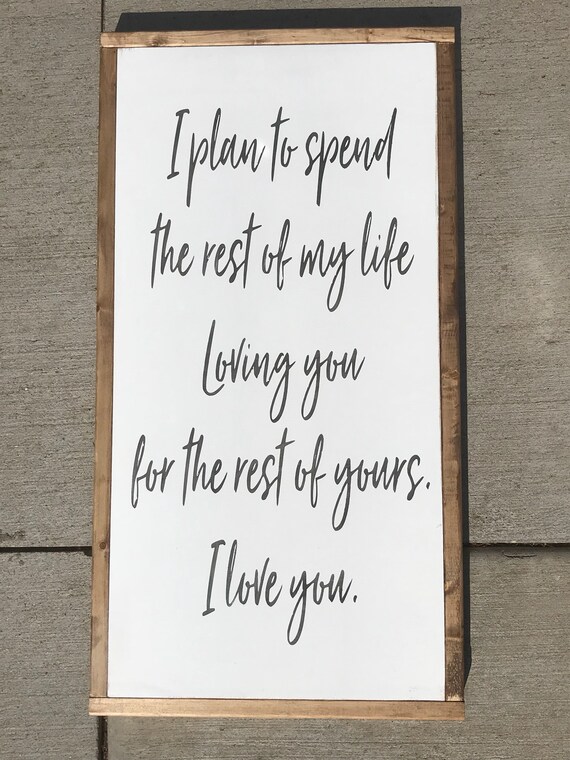 I plan to spend
the rest of my life
Loving you
for the rest of yours.
I love you.